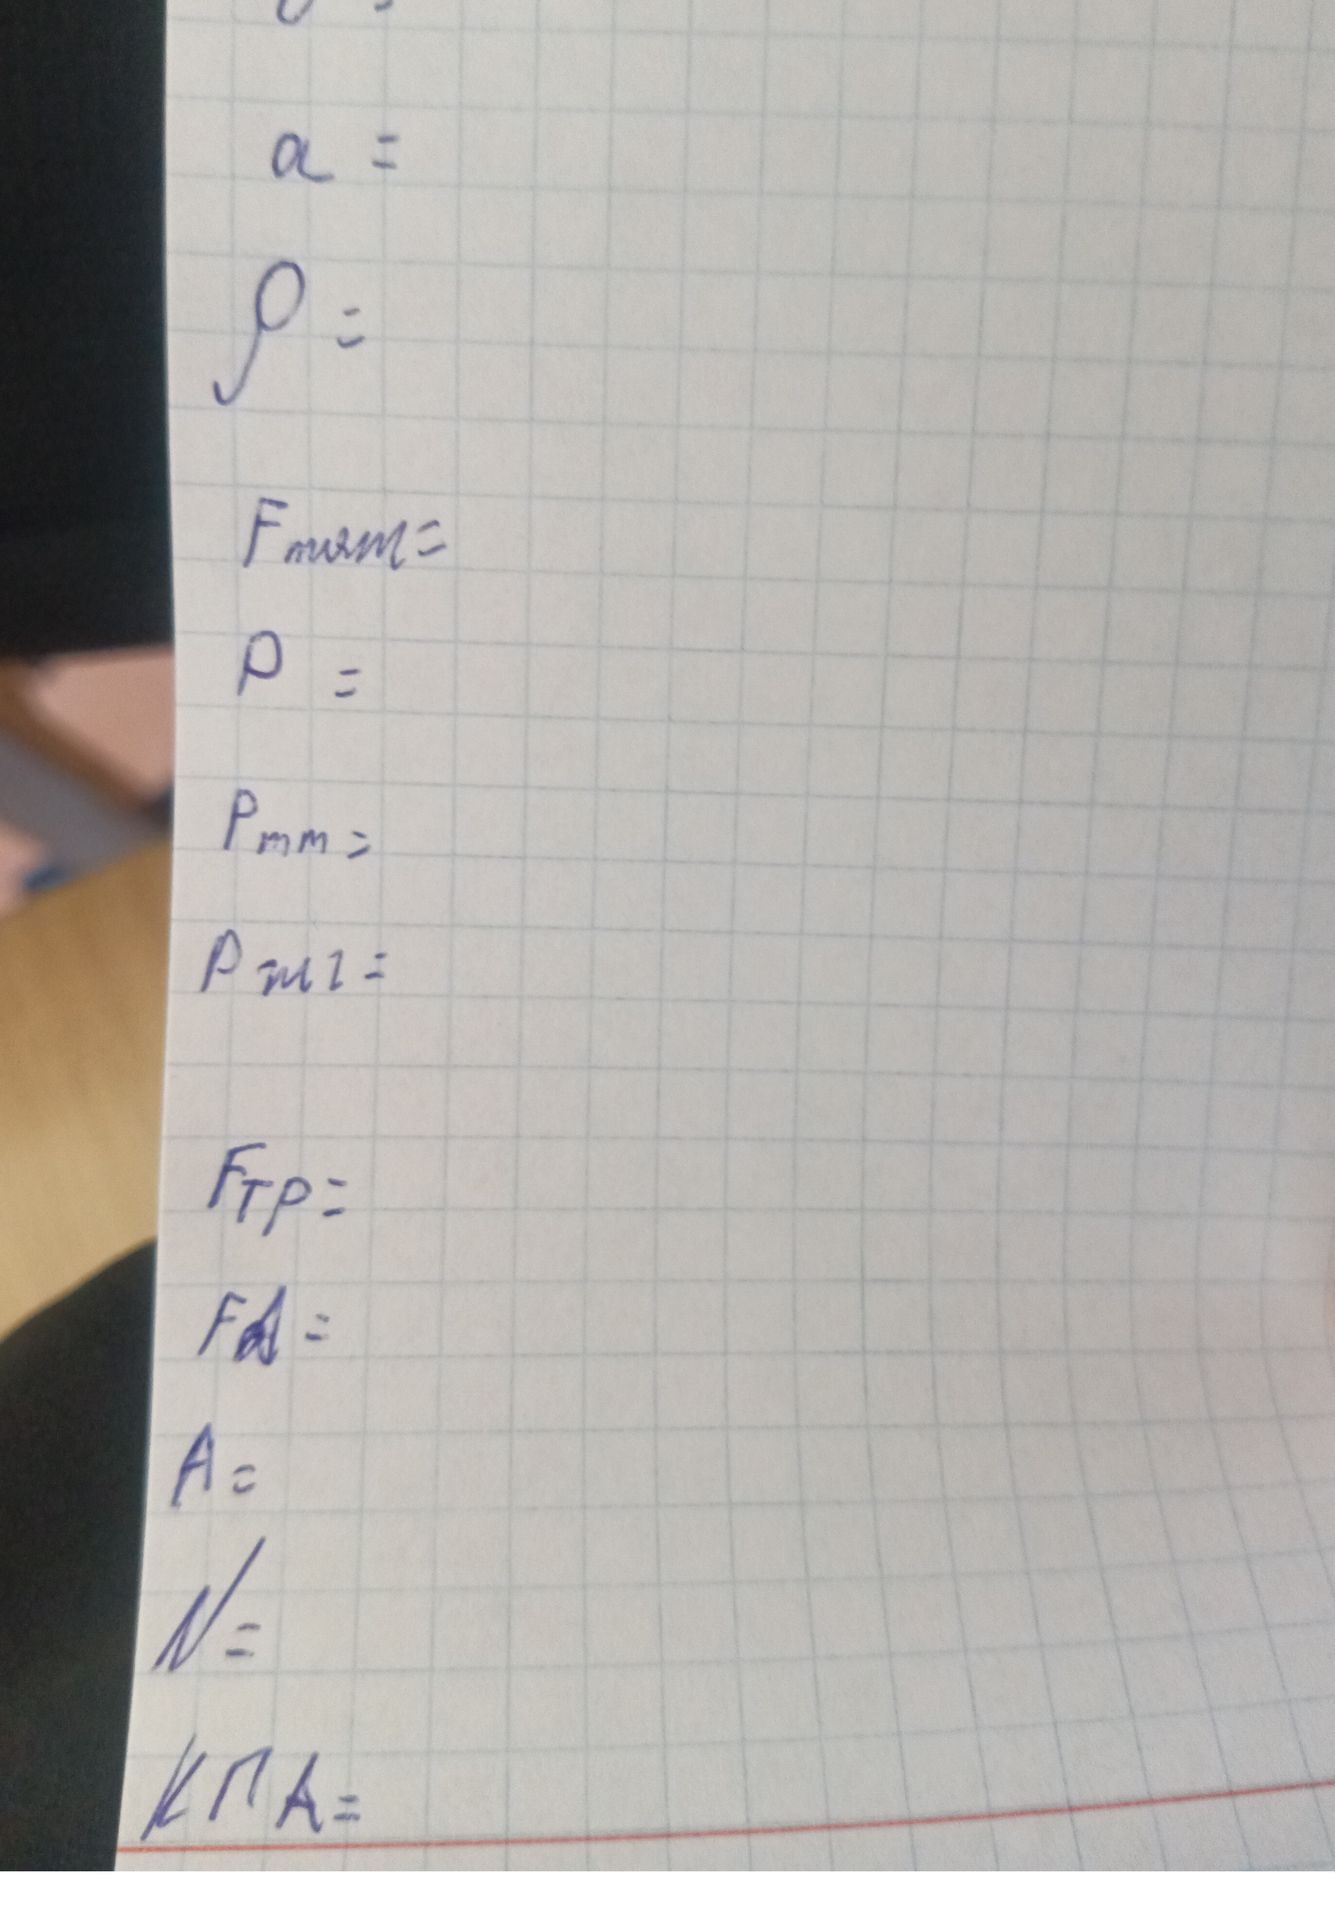 a =
ρ =
Fтяж=
P =
Pтт=
Pжг=
FТР=
FА=
A=
N=
КПД=